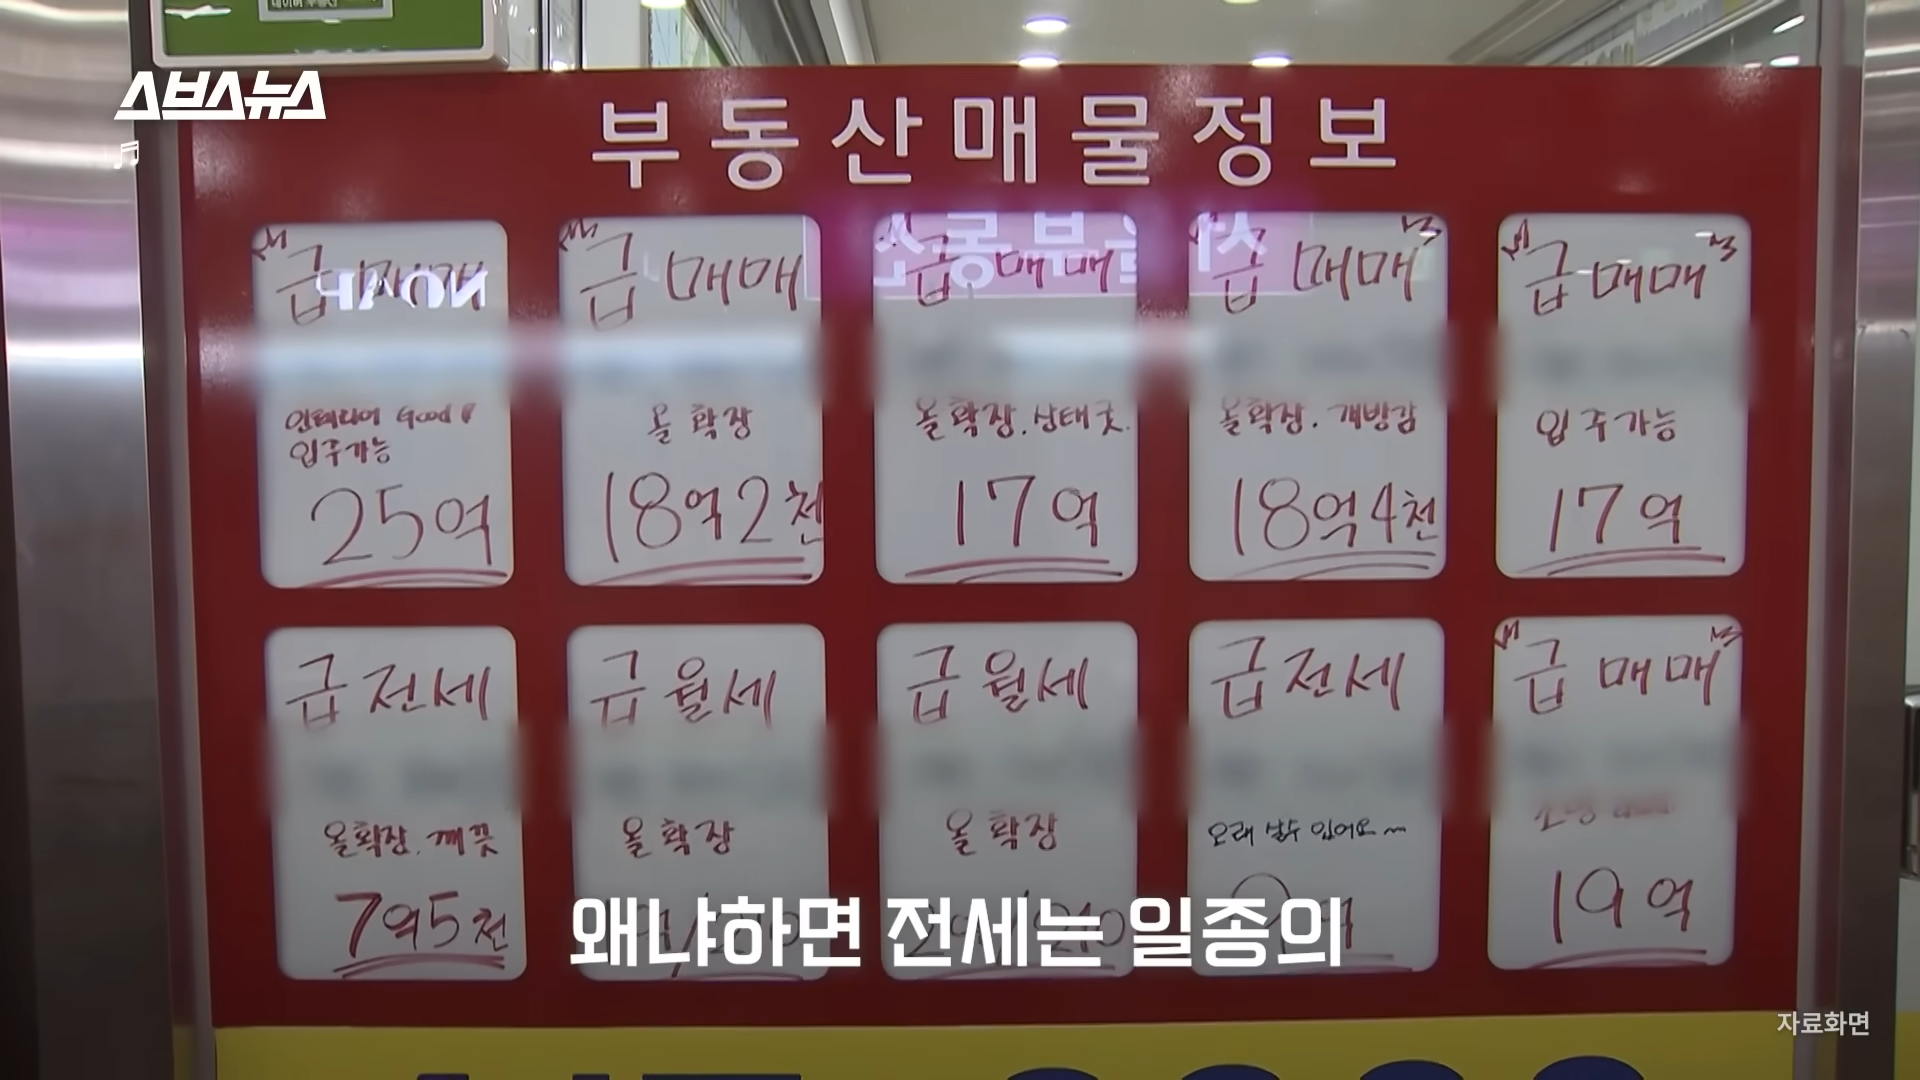 스브스뉴스
부동산매물정보
급매매
인테리어 Good!
입주가능
25억
급매매
올 확장
18억2천
급매매
올확장. 상태굿.
17억
급매매
올확장. 개방감
18억4천
급매매
입주가능
17억
급전세
올확장. 깨끗
7억5천
급월세
올확장
급월세
올확장
급전세
오래 살수 있어요~
급매매
19억
왜냐하면 전세는 일종의
자료화면